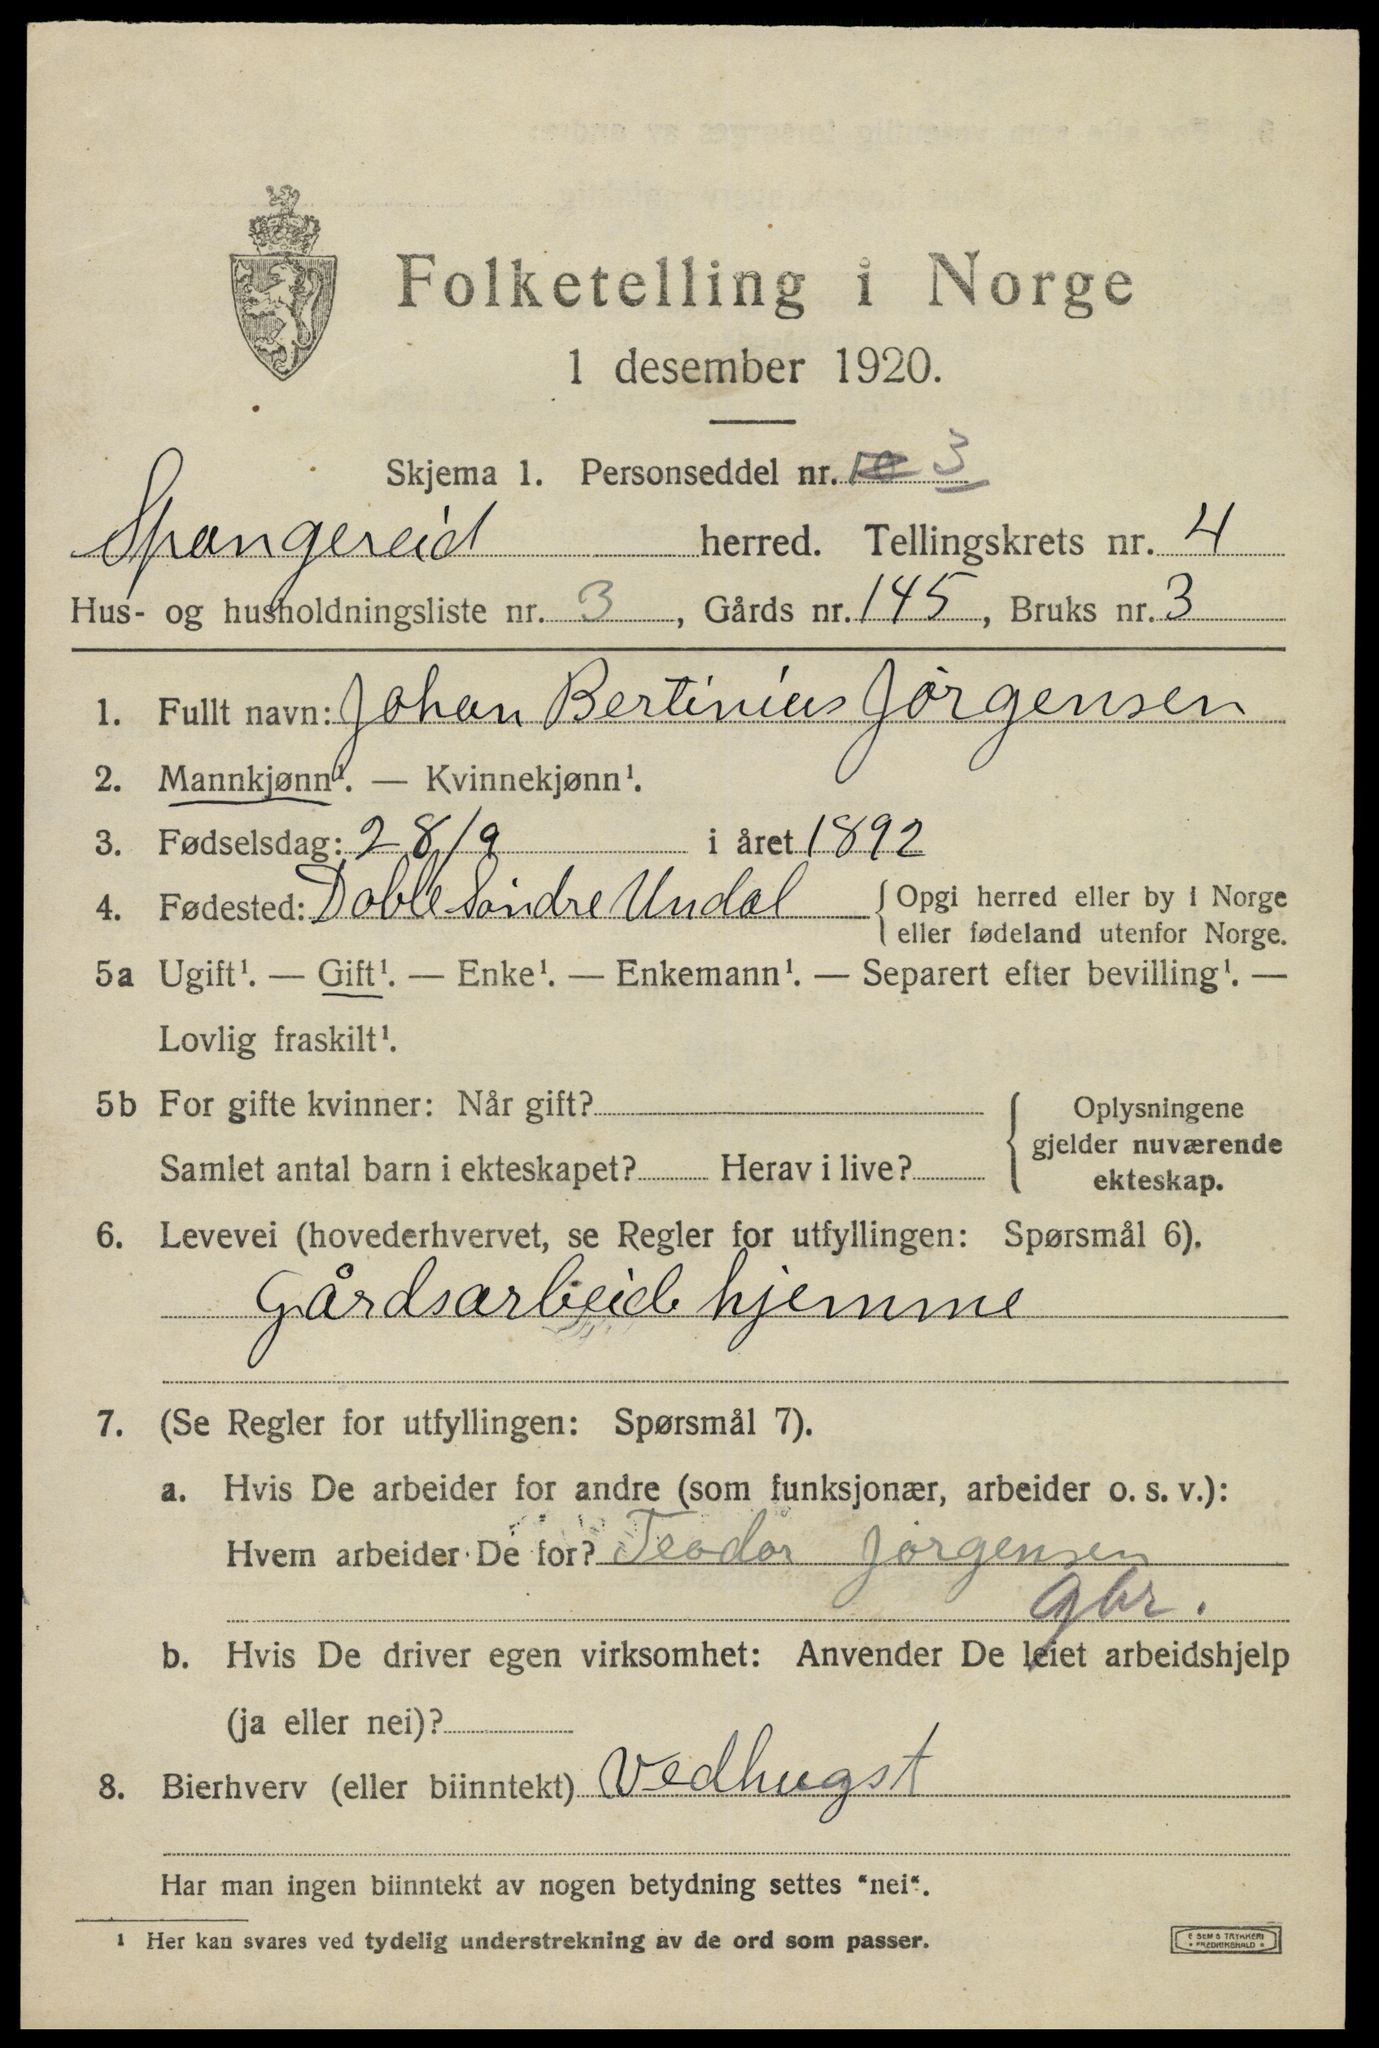 Folketelling i Norge
1 desember 1920.
Skjema 1. Personseddel nr. 3
Spangereid herred. Tellingskrets nr. 4
Hus- og husholdningsliste nr. 3, Gårds nr. 145, Bruks nr. 3
1. Fullt navn: Johan Bertinius Jörgensen
2. Mannkjønn¹. — Kvinnekjønn¹.
3. Fødselsdag: 28/9 i året 1892
4. Fødested: Doble Söndre Undal { Opgi herred eller by i Norge
eller fødeland utenfor Norge.
5a Ugift¹. — Gift¹. — Enke¹. — Enkemann¹. — Separert efter bevilling¹. —
Lovlig fraskilt¹.
5b For gifte kvinner: Når gift?
Samlet antal barn i ekteskapet? Herav i live?
{ Oplysningene
gjelder nuværende
ekteskap.
6. Levevei (hovederhvervet, se Regler for utfyllingen: Spørsmål 6).
Gårdsarbeid hjemme
7. (Se Regler for utfyllingen: Spørsmål 7).
a. Hvis De arbeider for andre (som funksjonær, arbeider o. s. v.):
Hvem arbeider De for? Teodor Jörgensen
gbr.
b. Hvis De driver egen virksomhet: Anvender De leiet arbeidshjelp
(ja eller nei)?
8. Bierhverv (eller biinntekt) Vedhugst
Har man ingen biinntekt av nogen betydning settes "nei".
¹ Her kan svares ved tydelig understrekning av de ord som passer.
E SEM'S TRYKKERI
FREDRIKSHALD